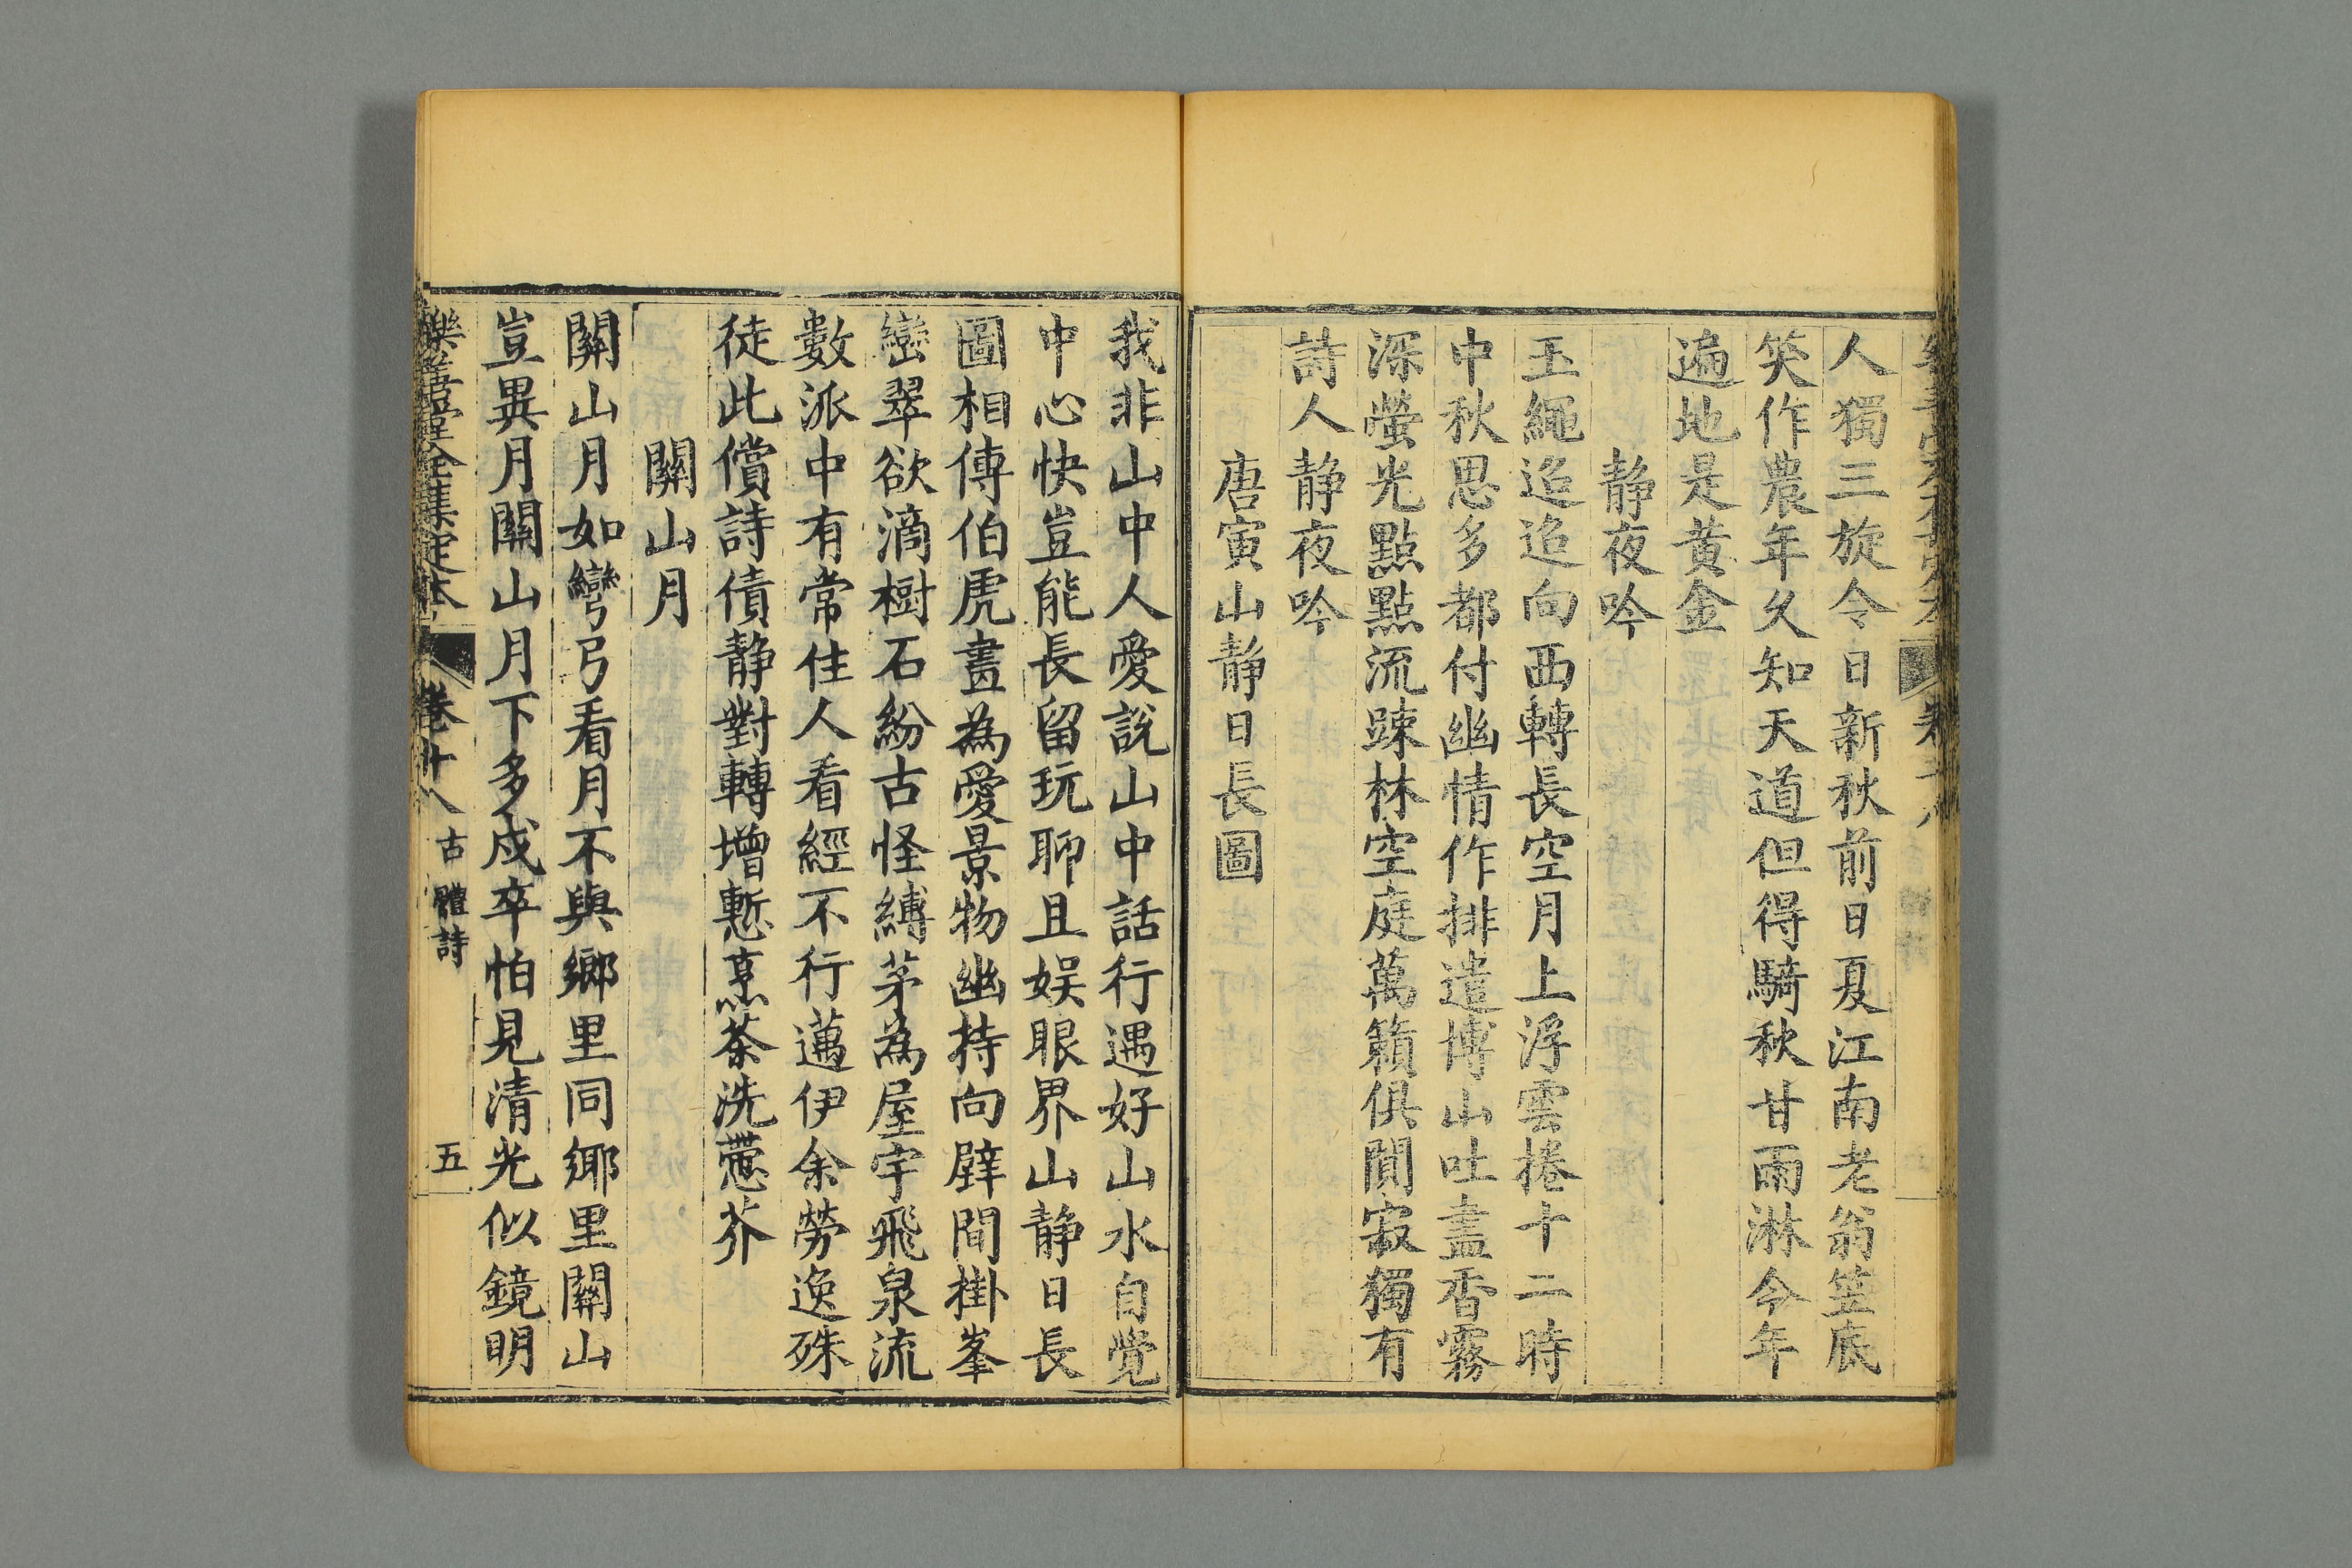 人獨三旋令日新秋前日夏江南老翁笠底
笑作農年久知天道但得騎秋甘雨淋今年
遍地是黄金
静夜吟
玉繩迢迢向西轉長空月上浮雲捲十二時
中秋思多都付幽情作排遣博山吐盡香霧
深螢光點點流踈林空庭萬籟俱閴寂獨有
詩人静夜吟
唐寅山静日長圖
我非山中人愛說山中話行遇好山水自覺
中心快豈能長留玩聊且娱眼界山静日長
圖相傳伯虎畫為愛景物幽持向壁間掛峯
巒翠欲滴樹石紛古怪縛茅為屋宇飛泉流
數派中有常住人看經不行邁伊余勞逸殊
徒此償詩債静對轉增慙烹茶洗蔕芥
關山月
關山月如彎弓弓看月不與鄉里同鄉里關山
豈異月關山月下多戍卒怕見清光似鏡明
樂善堂全集定本
卷十八
古體詩
五